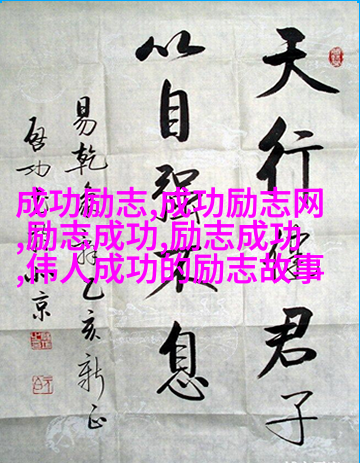 天行健君子
以自强不息
易乾象辞乙亥新正
啟功北京
成功励志,成功励志网
,励志成功,励志成功
,伟人成功的励志故事